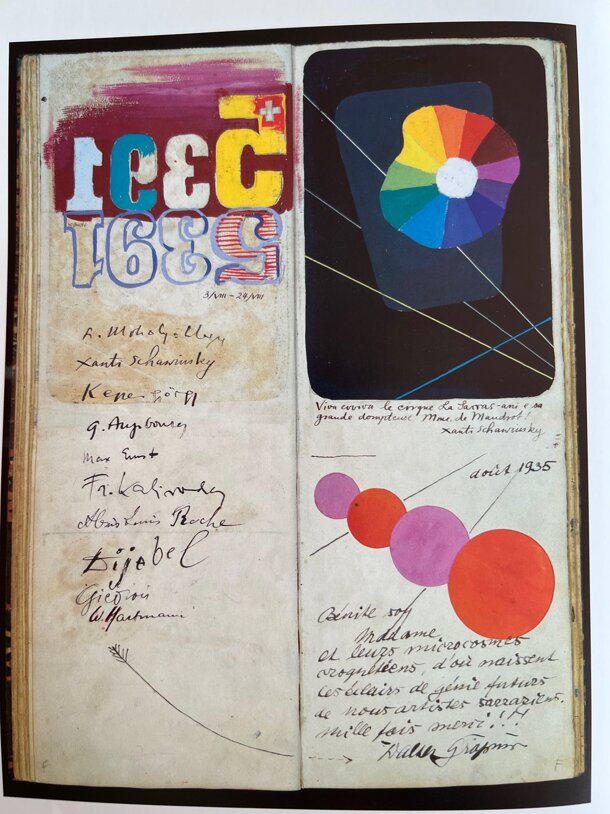 1935
1935
3/VIII – 24/VIII
L. Moholy-Nagy
Xanti Schawinsky
Kepes György
G. Augsbourg
Max Ernst
Fr. Kalivoda
Louis Roche
Giedion
W. Hartmann
Viva evviva le cirque La Sarras-ani e sa
grande dompteuse Mme. de Mandrot!
Xanti Schawinsky
août 1935
Bénite soy
Madame
et leurs microcosmes
d'où naissent
les éclairs de génie futurs
de nous artistes sarraziens.
mille fois merci!!!